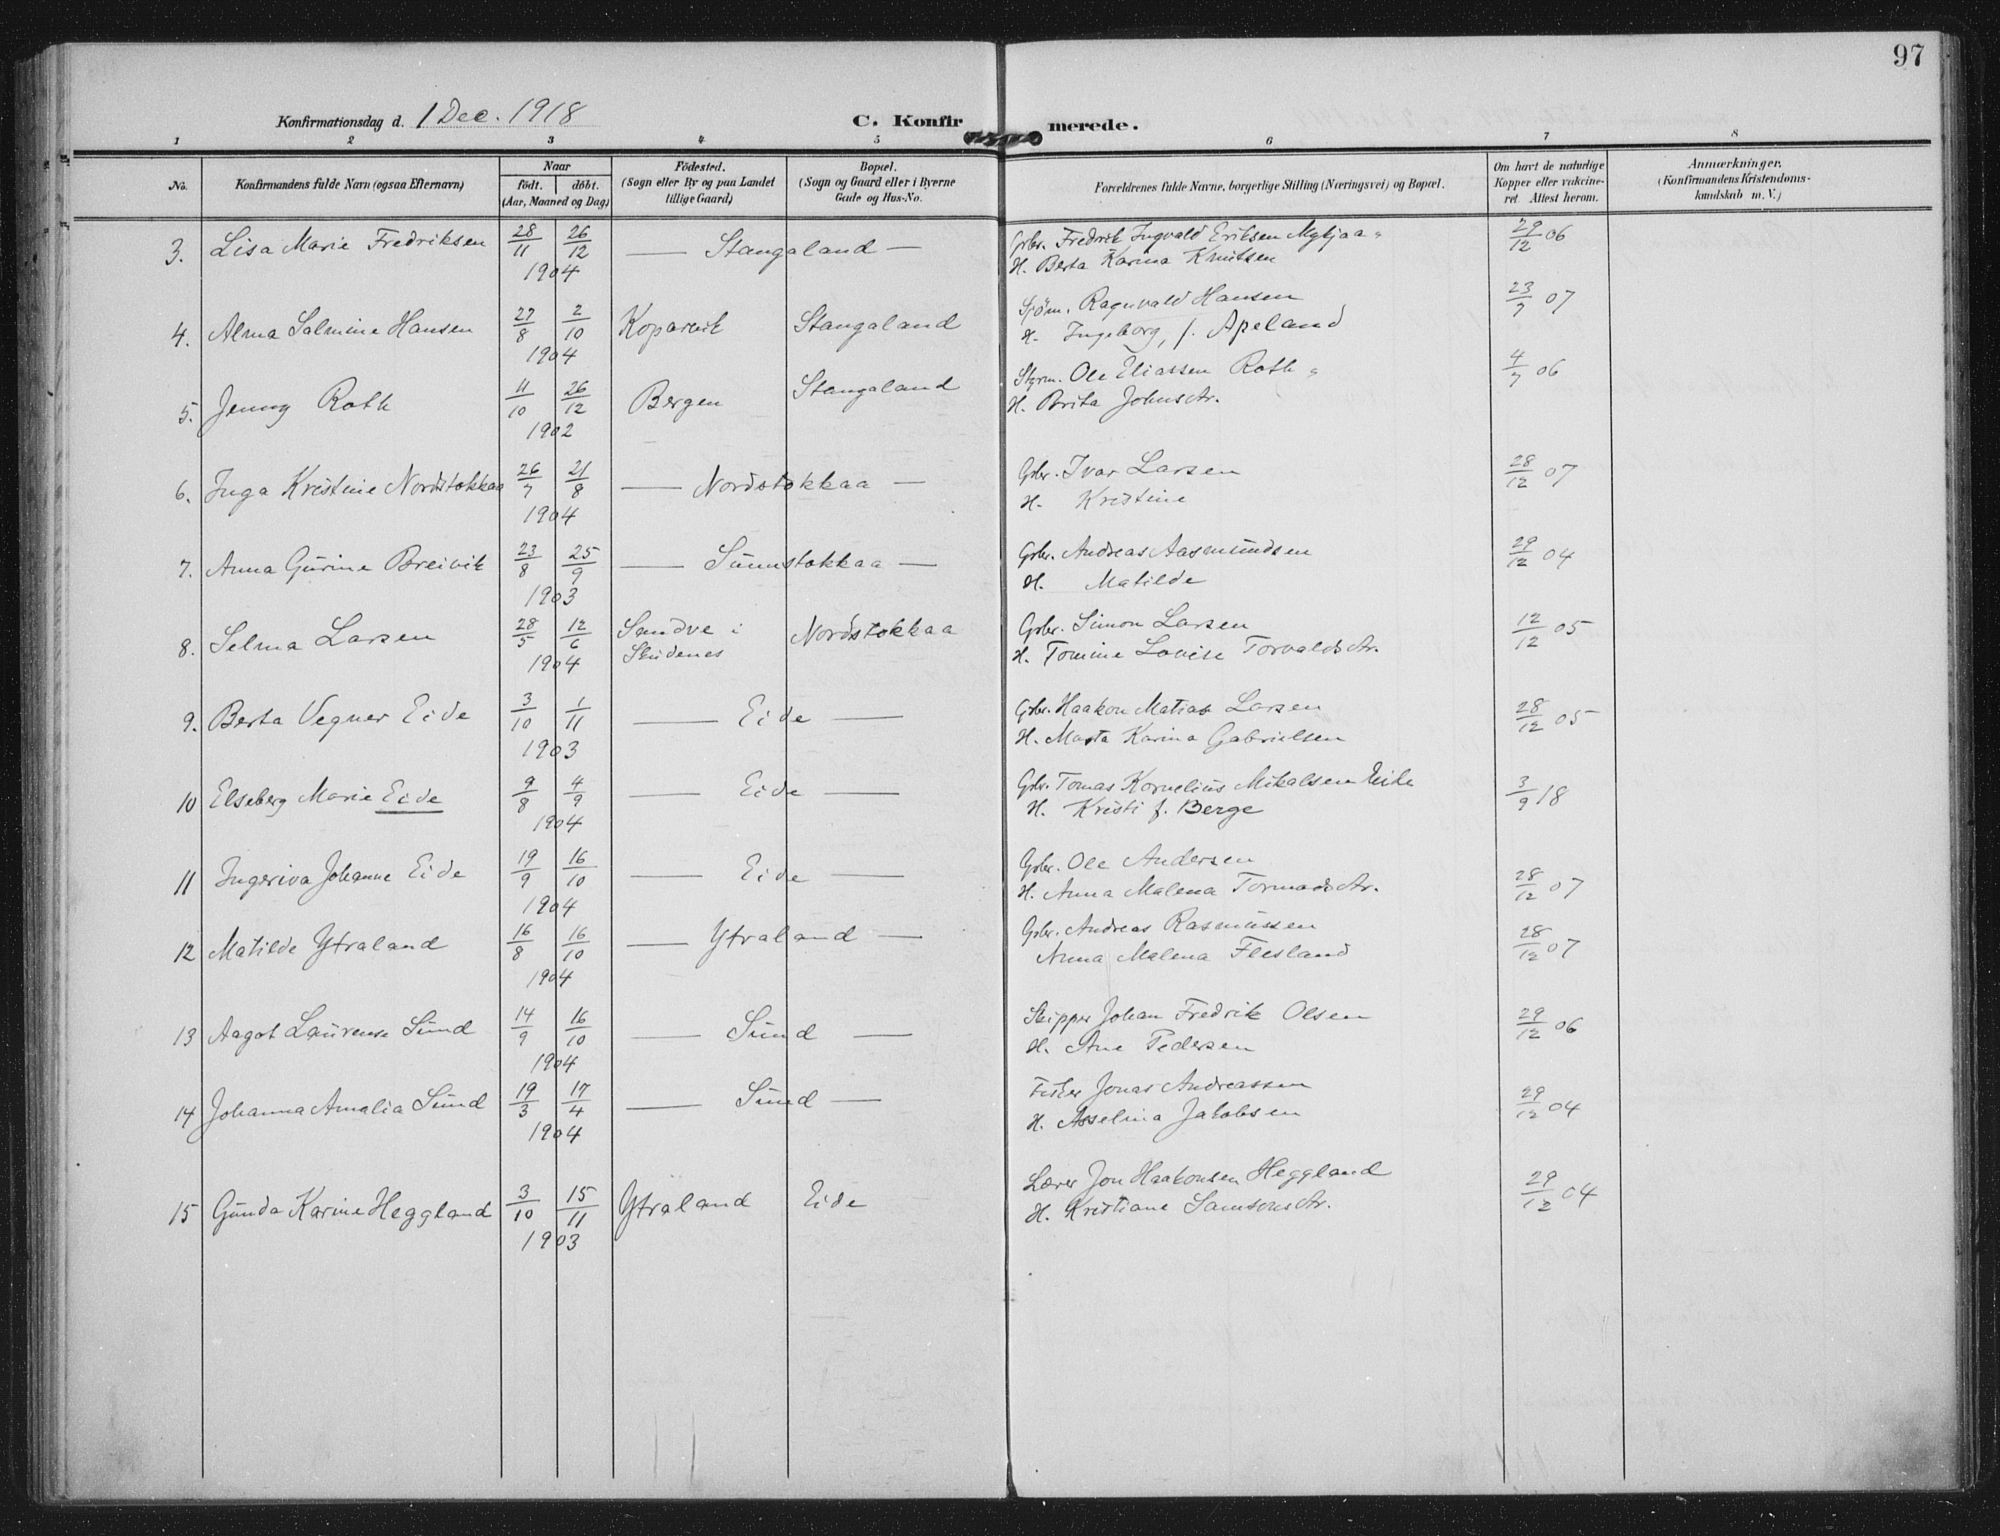 97
Konfirmationsdag d. 1 Dec. 1918 C. Konfirmerede.
1 2 3 4 5 6 7 8
No. Konfirmandens fulde Navn (ogsaa Efternavn) Naar födt. döbt. (Aar, Maaned og Dag) Födested. (Sogn eller By og paa Landet tillige Gaard) Bopæl. (Sogn og Gaard eller i Byerne Gade og Hus-No. Forældrenes fulde Navne, borgerlige Stilling (Næringsvei) og Bopæl. Om havt de naturlige Kopper eller vakcineret. Attest herom. Anmærkninger. (Konfirmandens Kristendomskundskab m. V.)
3. Lisa Marie Fredriksen 28/11 26/12 — Stangaland — Gbr. Fredrik Ingvald Eriksen Mykjaa 29/12 06
1904 H. Berta Karina Knutsen
4. Alma Salmine Hansen 27/8 2/10 Kopervik Stangaland Sjöm. Ragnvald Hansen 23/7 07
1904 H. Ingeborg, f. Apeland
5. Jenny Roth 11/10 26/12 Bergen Stangaland Styrm. Ole Eliassen Roth 4/7 06
1902 H. Brita Johnsdtr.
6. Inga Kristine Nordstokkaa 26/7 21/8 — Nordstokkaa — Gbr. Ivar Larsen 28/12 07
1904 H. Kristine
7. Anna Gurine Breivik 23/8 25/9 — Sunnstokkaa — Gbr. Andreas Aasmundsen 29/12 04
1903 H. Matilde
8. Selma Larsen 28/5 12/6 Sandve i Skudenes Nordstokkaa Gbr. Simon Larsen 12/12 05
1904 H. Tomine Lovise Torvaldsdtr.
9. Berta Vegner Eide 3/10 1/11 — Eide — Gbr. Haakon Matias Larsen 28/12 05
1903 H. Marta Karina Gabrielsen
10 Elseberg Marie Eide 9/8 4/9 — Eide — Gbr. Tomas Kornelius Mikalsen Eide 3/9 18
1904 H. Kristi f. Berge
11 Ingeriva Johanne Eide 19/9 16/10 — Eide — Gbr. Ole Andersen 28/12 07
1904 H. Anna Malena Tormodsdtr.
12 Matilde Ytraland 16/8 16/10 — Ytraland — Gbr. Andreas Rasmussen 28/12 07
1904 Anna Malena Flesland
13 Aagot Laurense Sund 14/9 16/10 — Sund — Skipper Johan Fredrik Olsen 29/12 06
1904 H. Ane Pedersen
14 Johanna Amalia Sund 19/3 17/4 — Sund — Fisker Jonas Andreassen 29/12 04
1904 H. Asselina Jakobsen
15 Gunda Karine Heggland 3/10 15/11 Ytraland Eide Lærer Jon Haakonsen Heggland 29/12 04
1903 H. Kristiane Samsonsdtr.